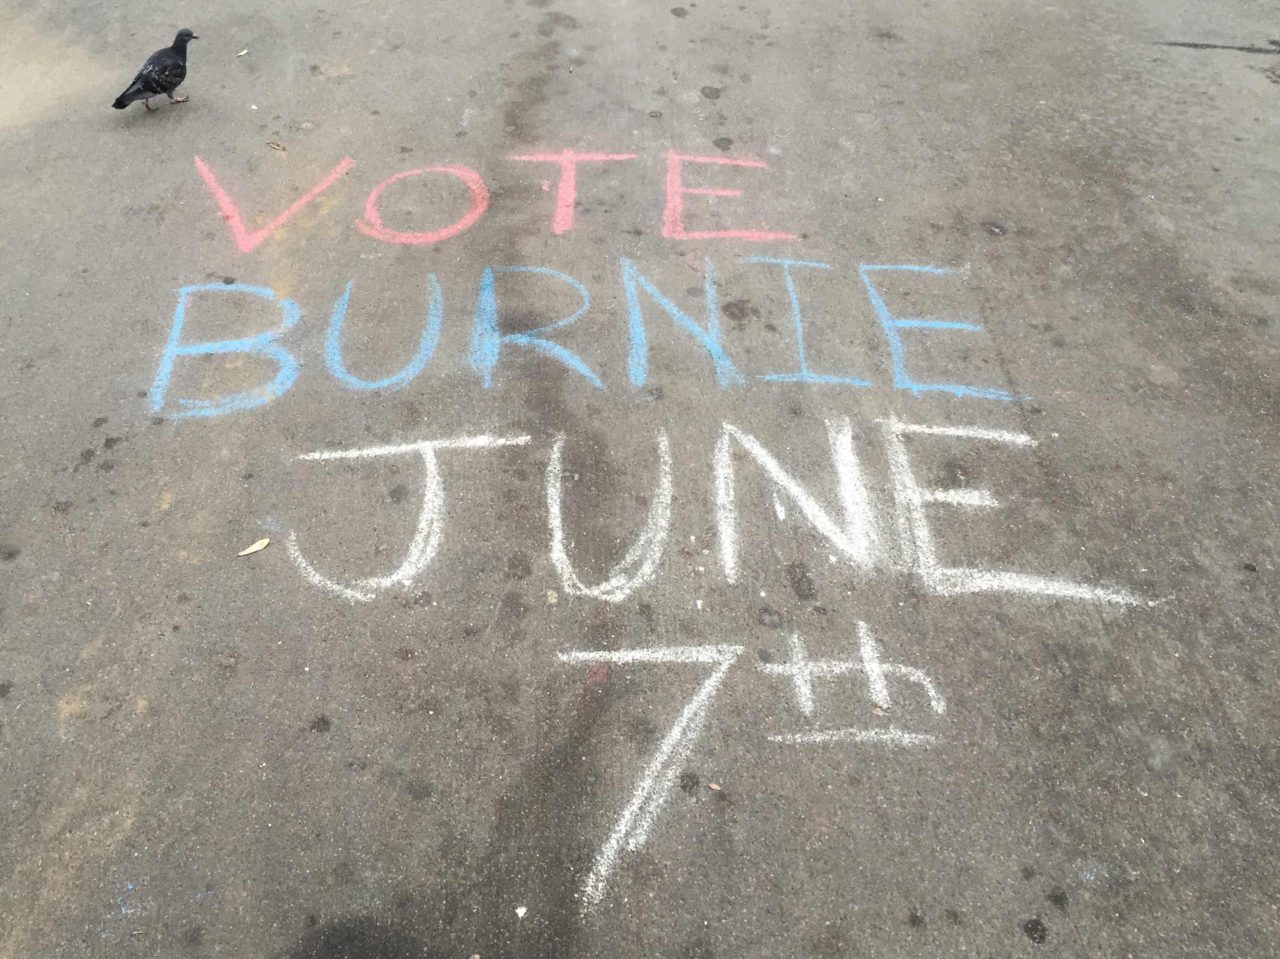 VOTE
BURNIE
JUNE
7th